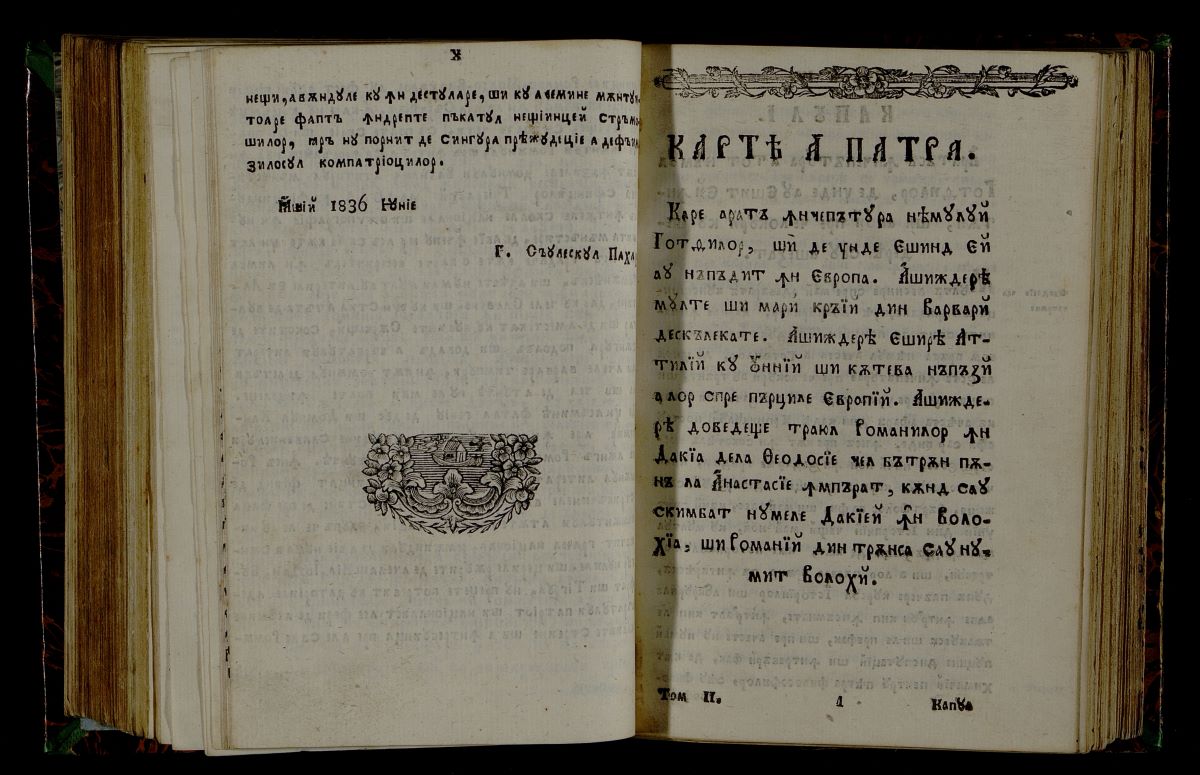 X
нещи, авѫндуле ку ꙟн дестуларе, ши ку ачемине мѫнтуи
тоаре фаптъ ꙟндрепте пъкатул нещіинцей Стръмо
шилор, ꙗръ ну порнит де Сингура прѣжудеціе а дефъи
зилосул компатріоцилор.
Йшій 1836 Юніе
Г. Съулескул Паха
КАРТѢ А ПАТРА.
Каре аратъ ꙟнчепътура нѣмулуй
Готѳилор, ши де унде Єшинд Єй
ау нъпъдит ꙟн Європа. Ашиждерѣ
мулте ши мари кръій дин Варварй
дескълекате. Ашиждерѣ Єширѣ Ат-
тилій ку Унній ши кѫтева нъпъзй
алор спре пърциле Європій. Ашижде-
рѣ доведеще траюл Романилор ꙟн
Дакїа дела Ѳеодосіе чел бътрѫн пѫ-
нъ ла Анастасіе ꙟмпърат, кѫнд сау
скимбат нумеле Дакїей ꙟн Воло-
хїа, ши Романїй динтрѫнса сау ну-
мит Волохй.
Том II. 1 Капул